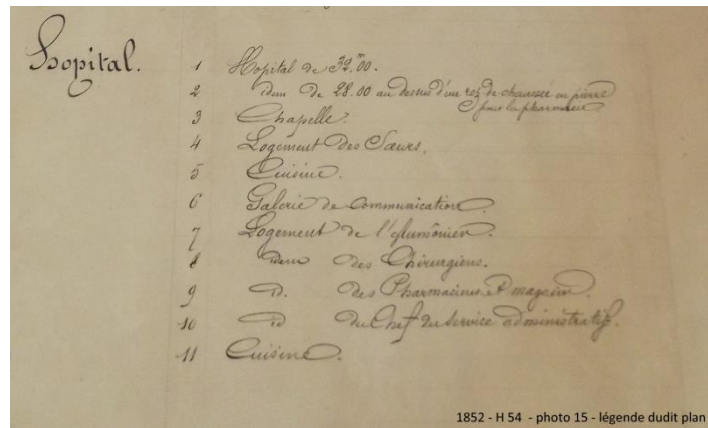 hopital.
1 Hopital de 32.m00.
2 idem de 28.00 au dessus d'un rez de chaussée en pierre
pour la pharmacie
3 Chapelle.
4 Logement des Sœurs.
5 Cuisine.
6 Galerie de communication.
7 Logement de l'Aumônier.
8 idem des Chirurgiens.
9 id. des Pharmaciens et magasin.
10 id du Chef du service administratif.
11 Cuisine.
1852 - H 54 - photo 15 - légende dudit plan